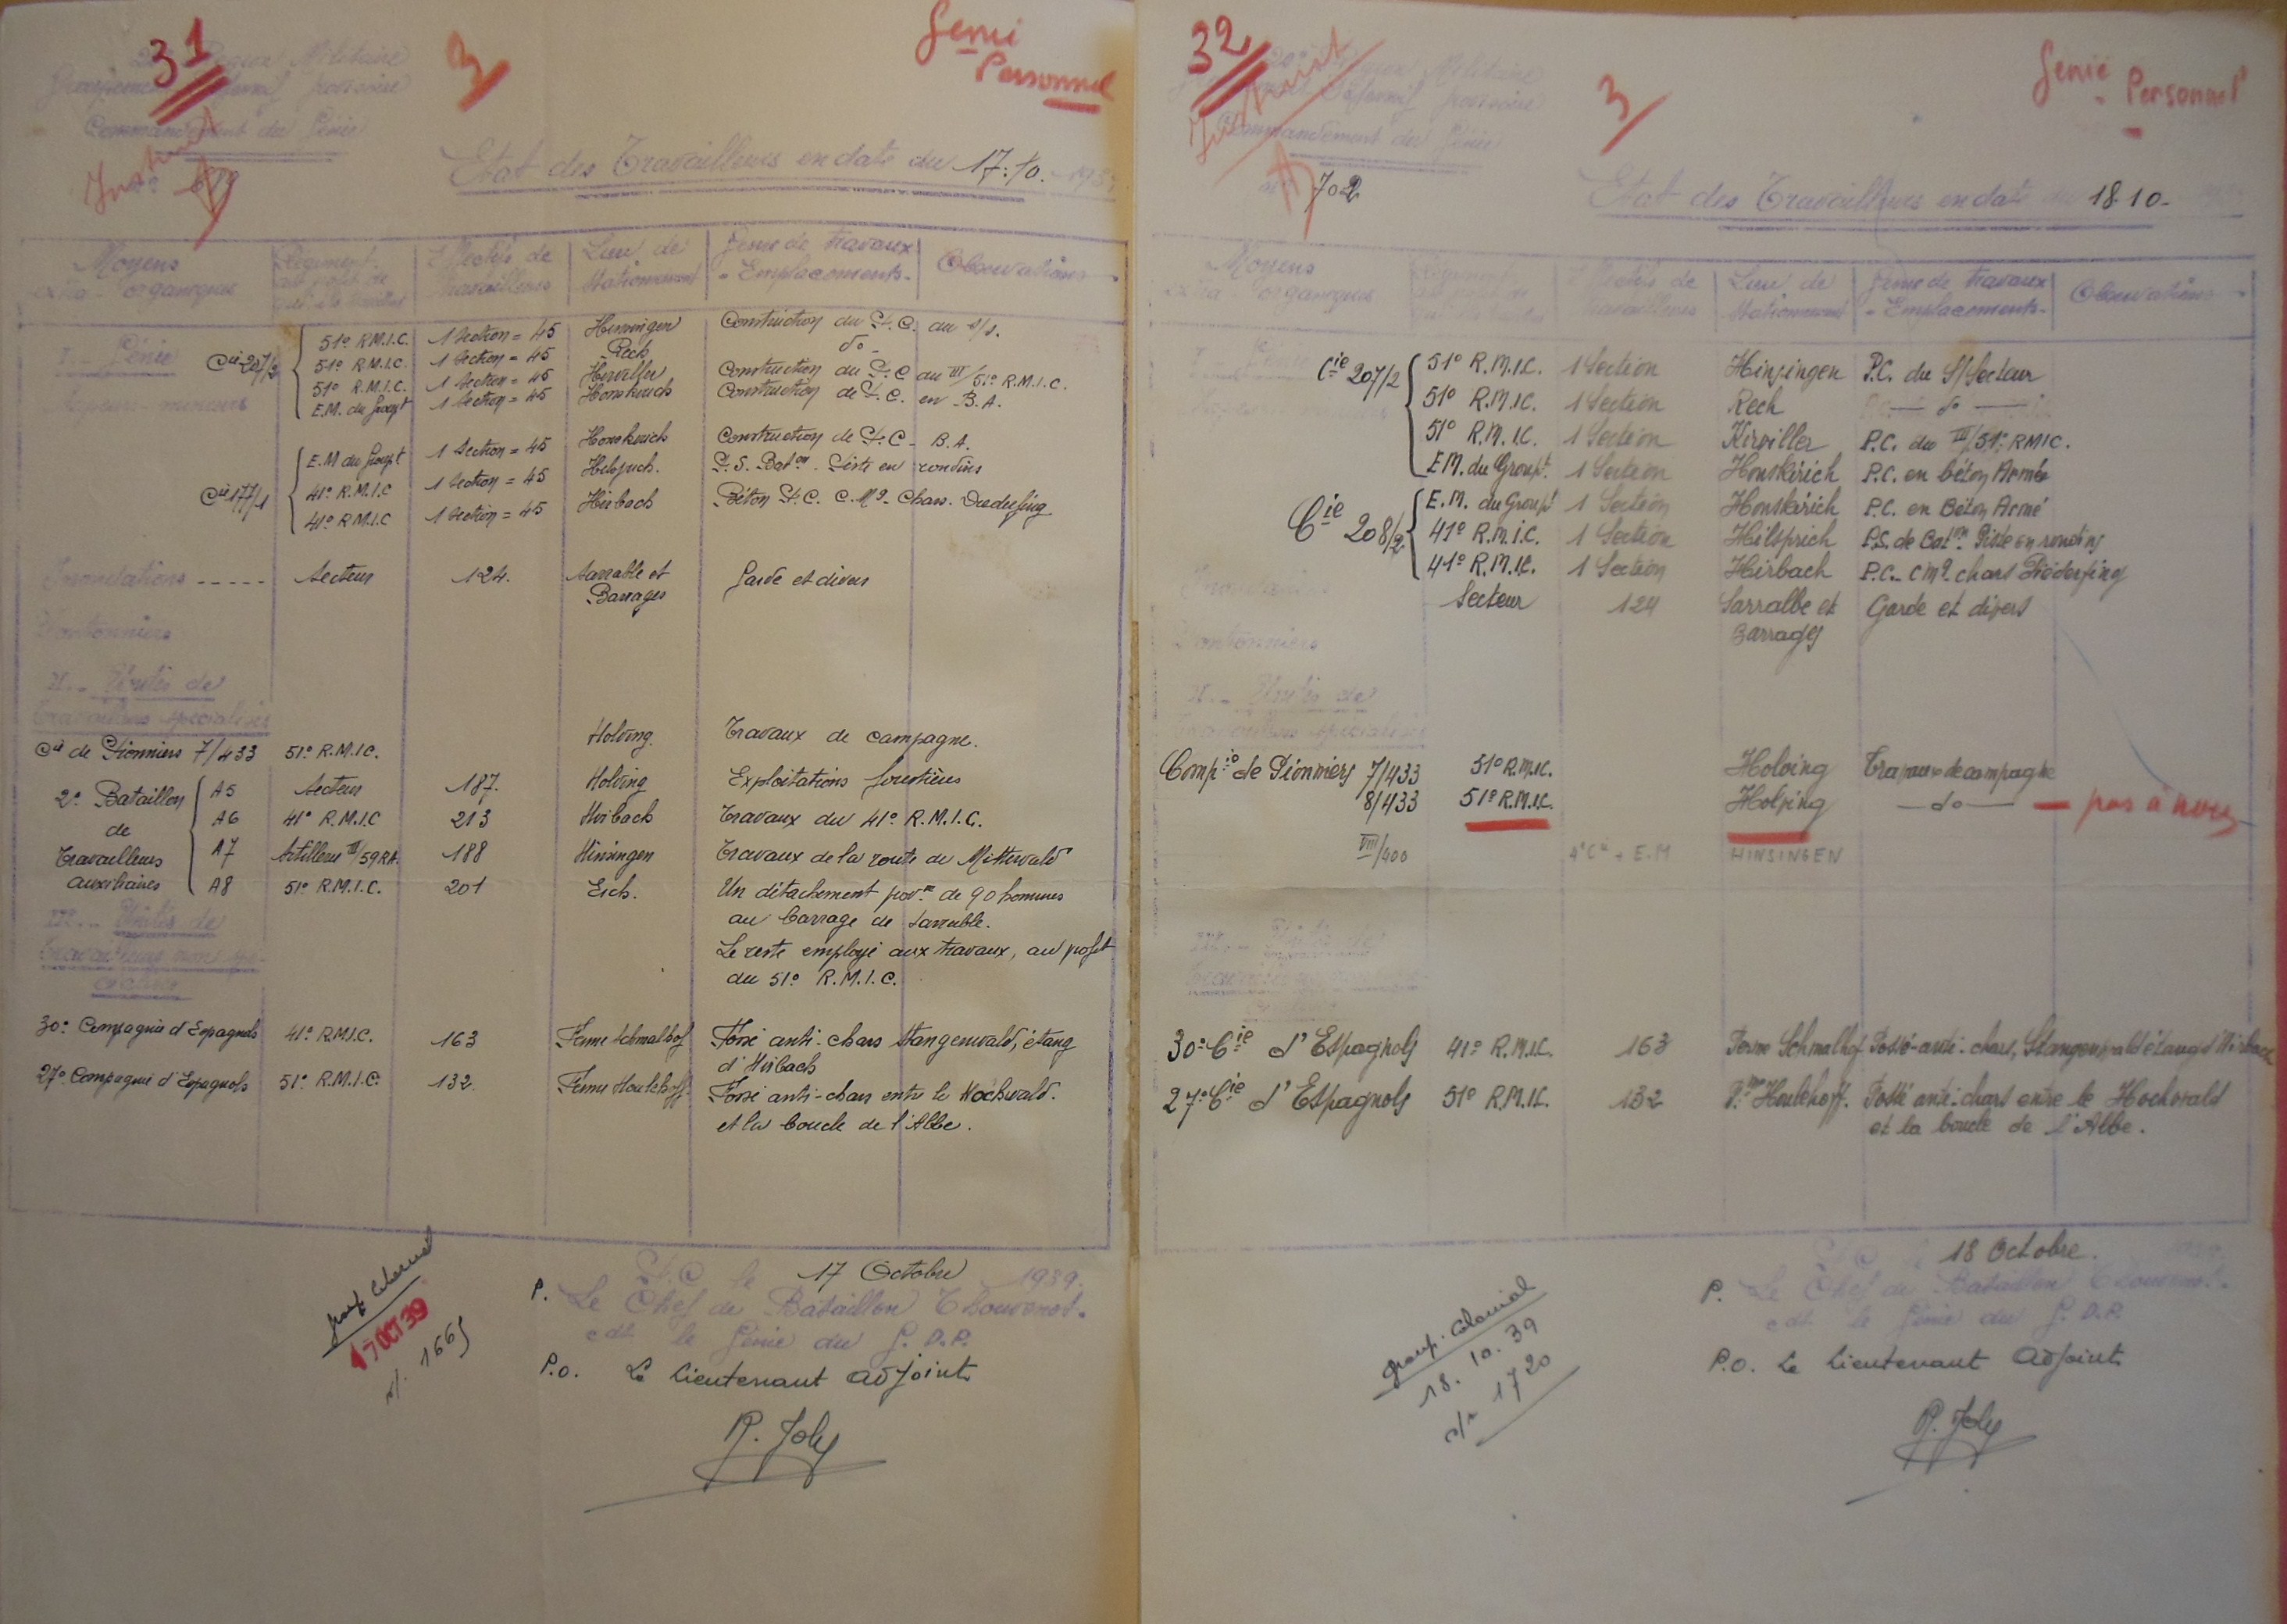 31
3
Génie
Personnel
Région Militaire
Groupement Défensif provisoire
Commandement du Génie
Etat des Travailleurs en date du 17.10. 193
Moyens extra-organiques
Effectifs de travailleurs
Lieu de Stationnement
Genre de travaux - Emplacements -
Observations
I. - Génie
Sapeurs-mineurs
Cie 207/2
51e R.M.I.C. 1 Section = 45 Hinsingen Construction du P.C. du S/S.
51e R.M.I.C. 1 Section = 45 Rech do -
51e R.M.I.C. 1 Section = 45 Kirviller Construction du P.C du III/51e R.M.I.C.
E.M. du Groupt 1 Section = 45 Honskirich Construction de P.C. en B.A.
Cie 177/1
E.M du Groupt 1 Section = 45 Honskirich Construction de P.C - B.A.
41e R.M.I.C 1 Section = 45 Hilsprich. P.S. Baton. Piste en rondins
41e R.M.I.C 1 Section = 45 Hirbach Béton P.C. C.M9. Chars. Diederfing
Inondations ----- Secteur 124. Sarralbe et Barrages Garde et divers
Pontonniers
II. - Unités de
travailleurs spécialisés
Cie de Pionniers 7/433 51e R.M.I.C. Holving. Travaux de campagne.
2e Bataillon de Travailleurs auxiliaires
A5 Secteur 187. Holving Exploitations forestières
A6 41e R.M.I.C 213 Hirbach Travaux du 41e R.M.I.C.
A7 Artillerie III/59 RA. 188 Hinsingen Travaux de la route de Mittewald
A8 51e R.M.I.C. 201 Eich. Un détachement prov.re de 90 hommes
au barrage de Sarralbe.
Le reste employé aux travaux, au profit
du 51e R.M.I.C.
III. - Unités de
travailleurs non spé-
cialisés
30e Compagnie d'Espagnols 41e R.M.I.C. 163 Ferme Schmalhof Fossé anti-chars Stangenwald, étang
d'Hirbach
27e Compagnie d'Espagnols 51e R.M.I.C. 132. Ferme Houlehoff Fossé anti-chars entre le Hochwald.
et la boucle de l'Albe.
P.C le 17 Octobre 1939.
P. Le Chef de Bataillon Thouvenot.
cdt le Génie du G.D.P.
P.O. Le Lieutenant adjoint
R. Joly
Group. Colonial
17 OCT 39
1665
32
3
Génie
- Personnel
Région Militaire
Défensif provisoire
Commandement du Génie
702
Etat des Travailleurs en date du 18.10-
Moyens extra-organiques
Effectifs de travailleurs
Lieu de Stationnement
Genre de travaux - Emplacements -
Observations
Cie 207/2
51e R.M.I.C. 1 Section Hinsingen P.C. du S/Secteur
51e R.M.I.C. 1 Section Rech — do —
51e R.M.I.C. 1 Section Kirviller P.C. du III/51e RMIC.
E.M. du Groupt. 1 Section Honskirich P.C. en béton Armée
Cie 208/2
E.M. du Groupt 1 Section Honskirich P.C. en Béton Armé
41e R.M.I.C. 1 Section Hilsprich P.S. de Baton Piste en rondins
41e R.M.I.C. 1 Section Hirbach P.C. CM9. chars Diéderfing
Secteur 124 Sarralbe et Barrages Garde et divers
Pontonniers
II. - Unités de
travailleurs spécialisés
Compie de Pionniers 7/433 51e R.M.I.C. Holving Travaux de campagne
8/433 51e R.M.I.C. Holving — do — — pas à nous
VIII/400 4e Cie + E.M HINSINGEN
30e Cie d'Espagnols 41e R.M.I.C. 163 Ferme Schmalhof Fossé-anti-chars, Stangenwald étang d'Hirbach
27e Cie d'Espagnols 51e R.M.I.C. 132 Fme Houlehoff. Fossé anti-chars entre le Hochwald
et la boucle de l'Albe.
18 Octobre.
P. Le Chef de Bataillon Thouvenot.
cdt le Génie du G.D.P.
P.O. Le Lieutenant Adjoint
R. Joly
Group. Colonial
18.10.39
1720